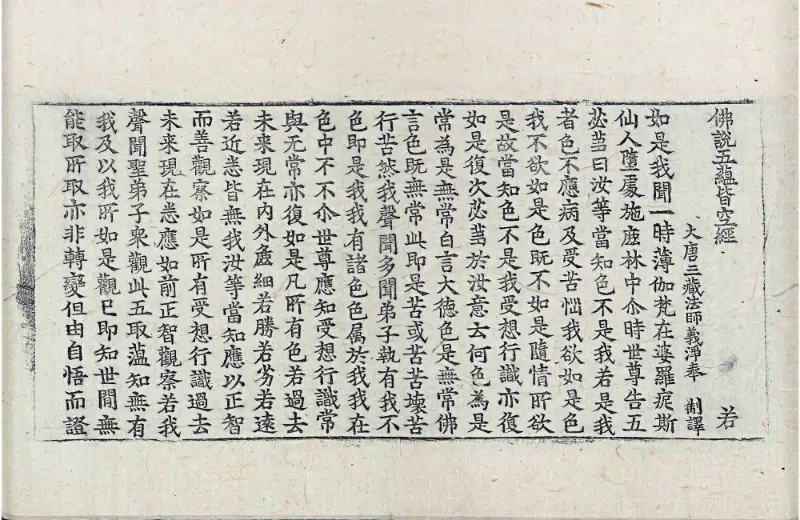 佛說五蘊皆空經 若
大唐三藏法師義淨奉 制譯
如是我聞一時薄伽梵在婆羅痆斯
仙人墮處施鹿林中尒時世尊告五
苾芻曰汝等當知色不是我若是我
者色不應病及受苦惱我欲如是色
我不欲如是色既不如是隨情所欲
是故當知色不是我受想行識亦復
如是復次苾芻於汝意云何色為是
常為是無常白言大德色是無常佛
言色既無常此即是苦或苦苦壞苦
行苦然我聲聞多聞弟子執有我不
色即是我我有諸色色属於我我在
色中不不尒世尊應知受想行識常
與无常亦復如是凡所有色若過去
未來現在內外麁細若勝若劣若遠
若近悉皆無我汝等當知應以正智
而善觀察如是所有受想行識過去
未來現在悉應如前正智觀察若我
聲聞聖弟子衆觀此五取蘊知無有
我及以我所如是觀已即知世間無
能取所取亦非轉變但由自悟而證